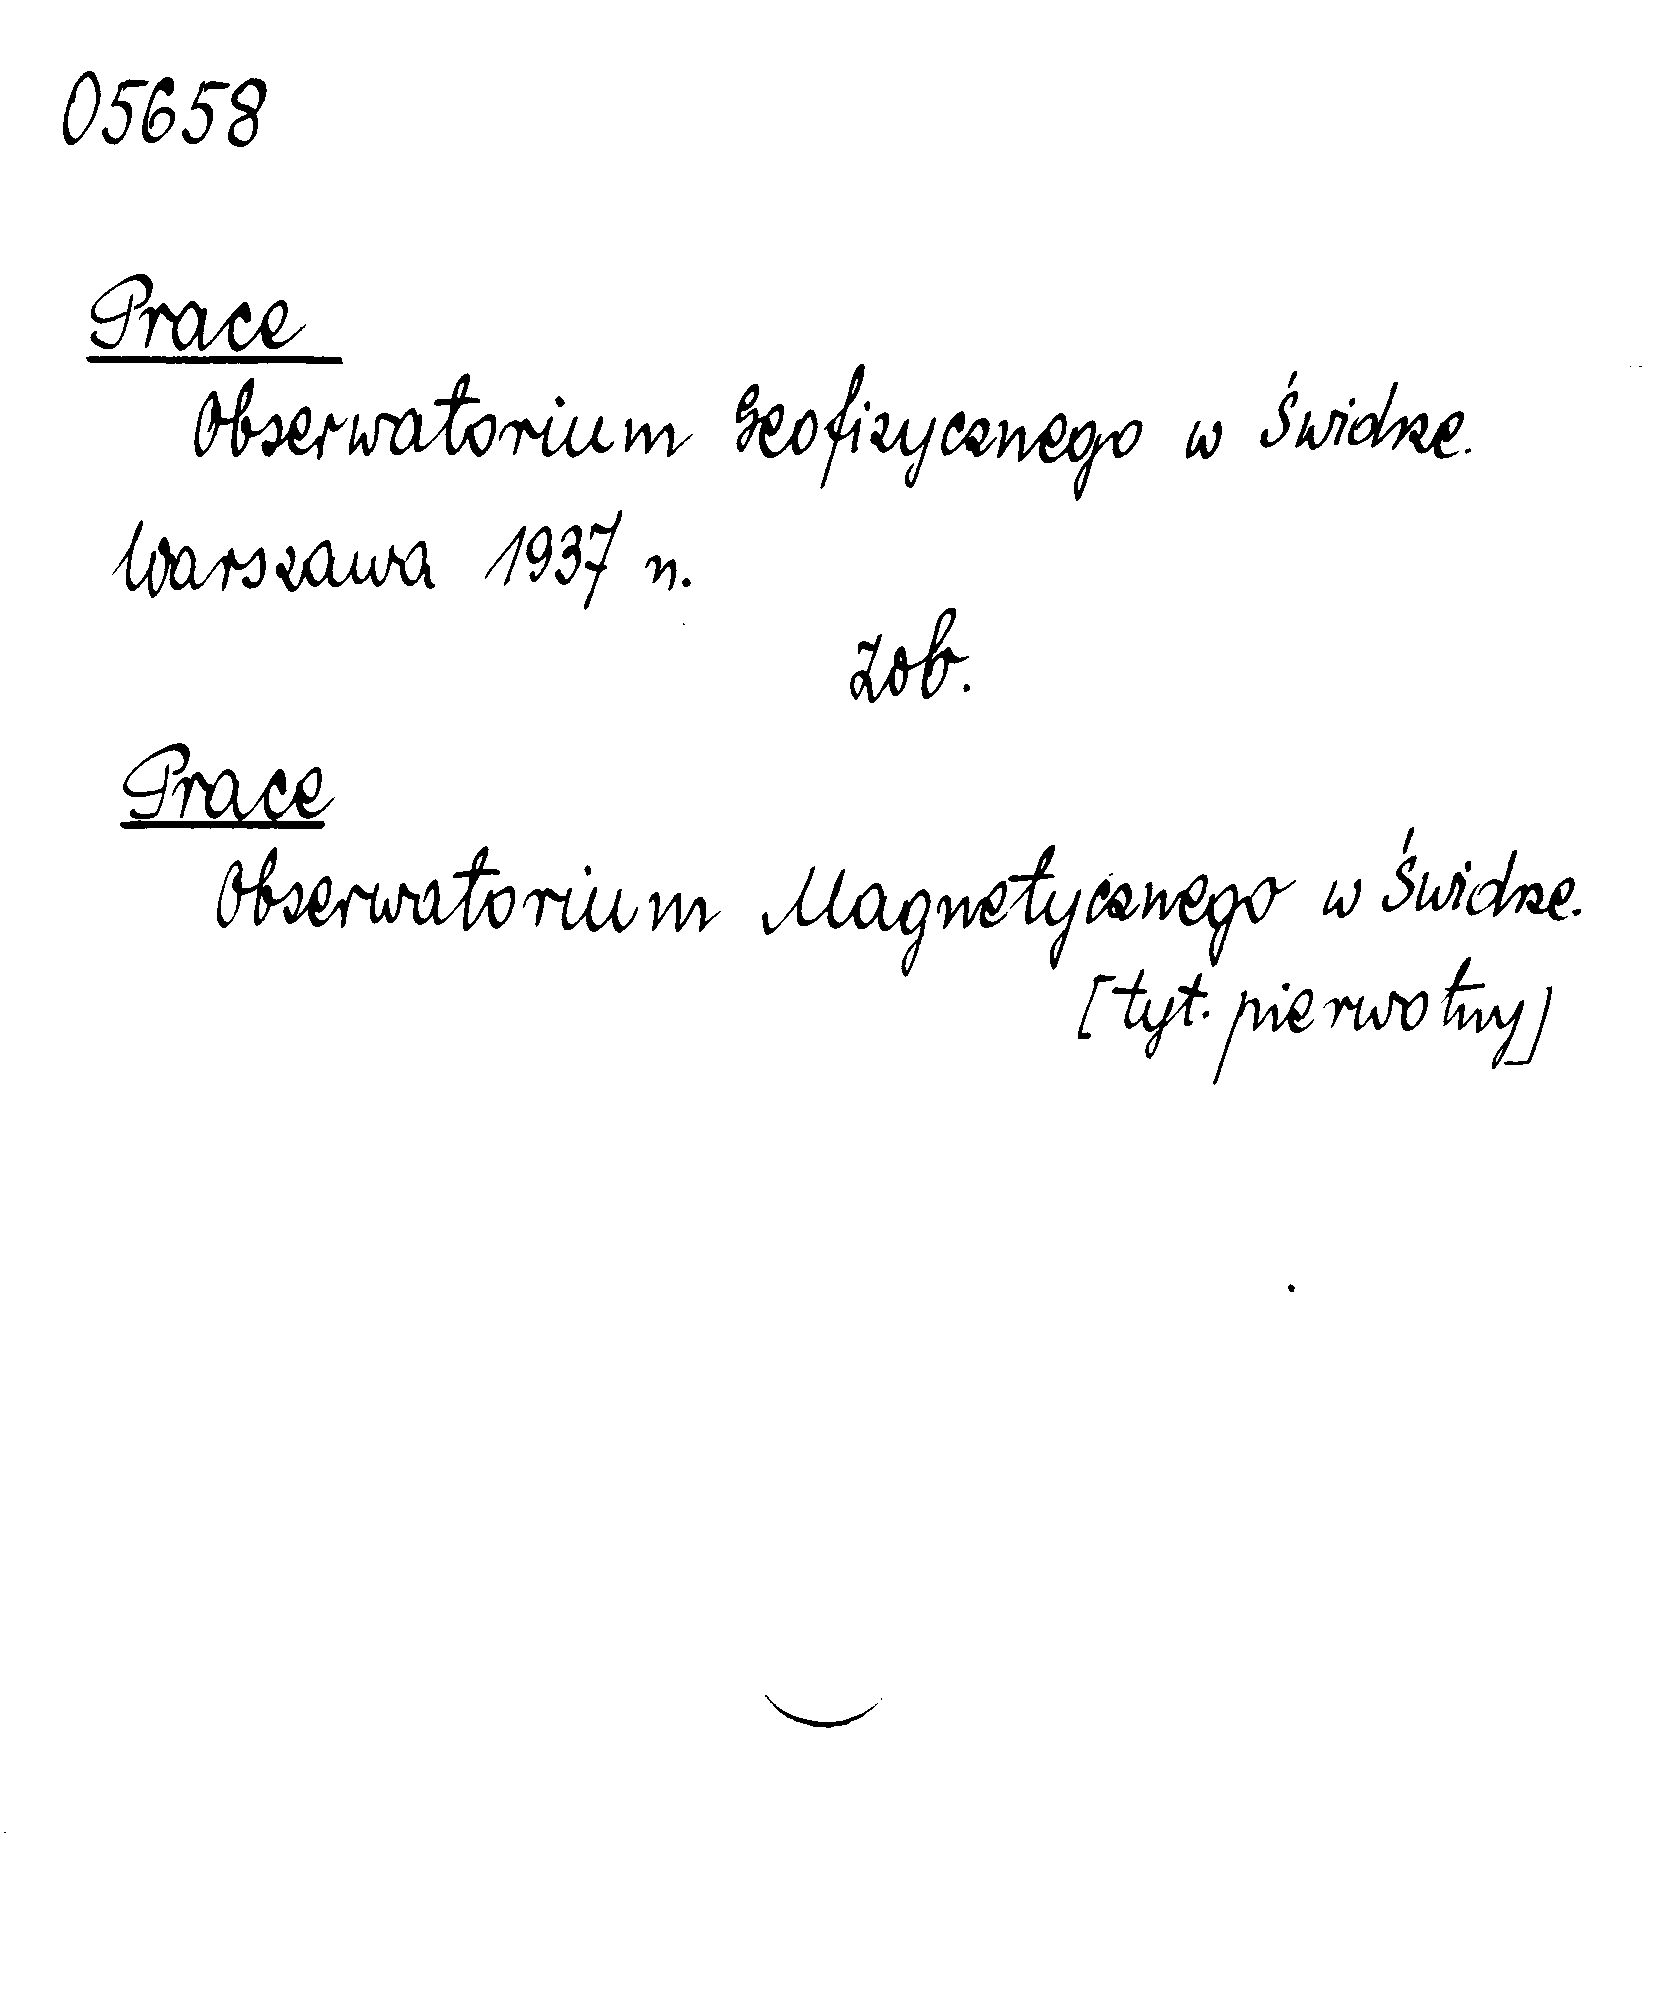 05658
Prace
Obserwatorium Geofizycznego w Świdrze.
Warszawa 1937 n.
Zob.
Prace
Obserwatorium Magnetycznego w Świdrze.
[tyt. pierwotny]